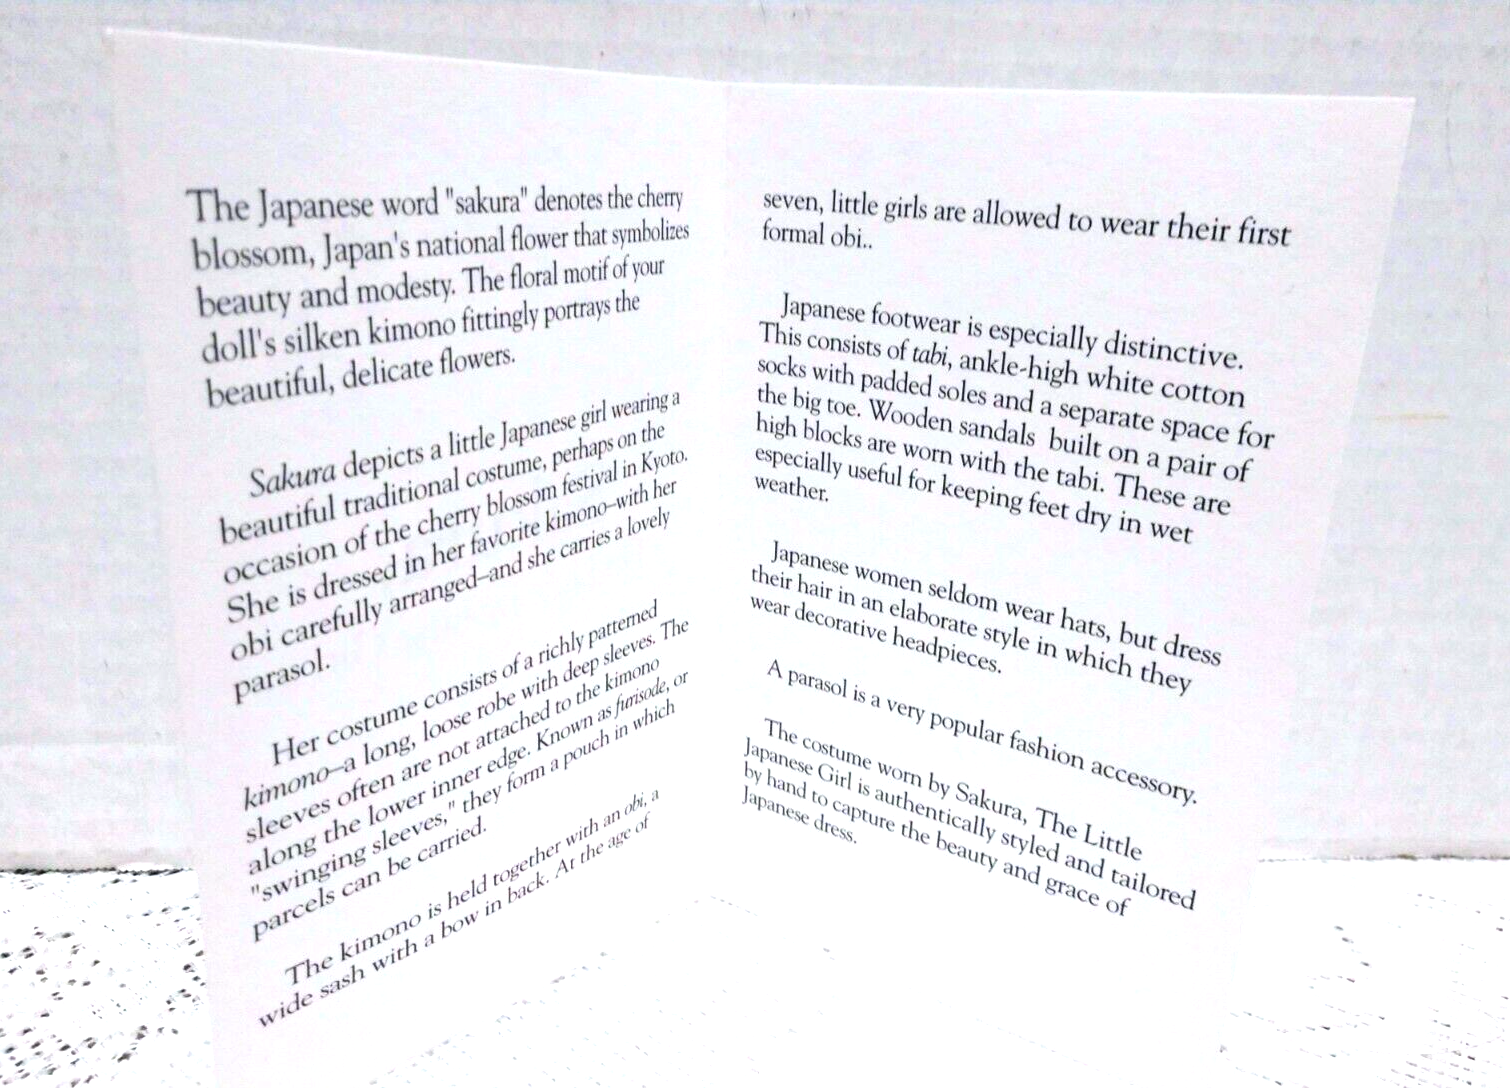 The Japanese word "sakura" denotes the cherry
blossom, Japan's national flower that symbolizes
beauty and modesty. The floral motif of your
doll's silken kimono fittingly portrays the
beautiful, delicate flowers.
Sakura depicts a little Japanese girl wearing a
beautiful traditional costume, perhaps on the
occasion of the cherry blossom festival in Kyoto.
She is dressed in her favorite kimono–with her
obi carefully arranged–and she carries a lovely
parasol.
Her costume consists of a richly patterned
kimono–a long, loose robe with deep sleeves. The
sleeves often are not attached to the kimono
along the lower inner edge. Known as furisode, or
"swinging sleeves," they form a pouch in which
parcels can be carried.
The kimono is held together with an obi, a
wide sash with a bow in back. At the age of
seven, little girls are allowed to wear their first
formal obi..
Japanese footwear is especially distinctive.
This consists of tabi, ankle-high white cotton
socks with padded soles and a separate space for
the big toe. Wooden sandals built on a pair of
high blocks are worn with the tabi. These are
especially useful for keeping feet dry in wet
weather.
Japanese women seldom wear hats, but dress
their hair in an elaborate style in which they
wear decorative headpieces.
A parasol is a very popular fashion accessory.
The costume worn by Sakura, The Little
Japanese Girl is authentically styled and tailored
by hand to capture the beauty and grace of
Japanese dress.